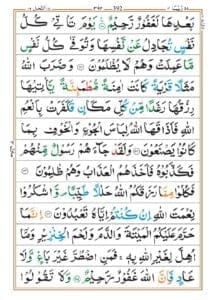 بَعۡدِهَا لَغَفُوۡرٌ رَّحِيۡمٌ يَوۡمَ تَاۡتِىۡ كُلُّ
نَفۡسٍ تُجَادِلُ عَنۡ نَّفۡسِهَا وَتُوَفّٰى كُلُّ نَفۡسٍ
مَّا عَمِلَتۡ وَهُمۡ لَا يُظۡلَمُوۡنَ وَضَرَبَ اللّٰهُ
مَثَلًا قَرۡيَةً كَانَتۡ اٰمِنَةً مُّطۡمَٮِٕنَّةً يَّاۡتِيۡهَا
رِزۡقُهَا رَغَدًا مِّنۡ كُلِّ مَكَانٍ فَكَفَرَتۡ بِاَنۡعُمِ
اللّٰهِ فَاَذَاقَهَا اللّٰهُ لِبَاسَ الۡجُوۡعِ وَالۡخَـوۡفِ بِمَا
كَانُوۡا يَصۡنَعُوۡنَ وَلَـقَدۡ جَآءَهُمۡ رَسُوۡلٌ مِّنۡهُمۡ
فَكَذَّبُوۡهُ فَاَخَذَهُمُ الۡعَذَابُ وَهُمۡ ظٰلِمُوۡنَ
فَكُلُوۡا مِمَّا رَزَقَكُمُ اللّٰهُ حَلٰلًا طَيِّبًا وَّاشۡكُرُوۡا
نِعۡمَتَ اللّٰهِ اِنۡ كُنۡـتُمۡ اِيَّاهُ تَعۡبُدُوۡنَ اِنَّمَا
حَرَّمَ عَلَيۡكُمُ الۡمَيۡتَةَ وَالدَّمَ وَلَحۡمَ الۡخِنۡزِيۡرِ وَمَاۤ
اُهِلَّ لِغَيۡرِ اللّٰهِ بِهٖ‌ۚ فَمَنِ اضۡطُرَّ غَيۡرَ بَاغٍ وَّلَا
عَادٍ فَاِنَّ اللّٰهَ غَفُوۡرٌ رَّحِيۡمٌ وَلَا تَقُوۡلُوۡا